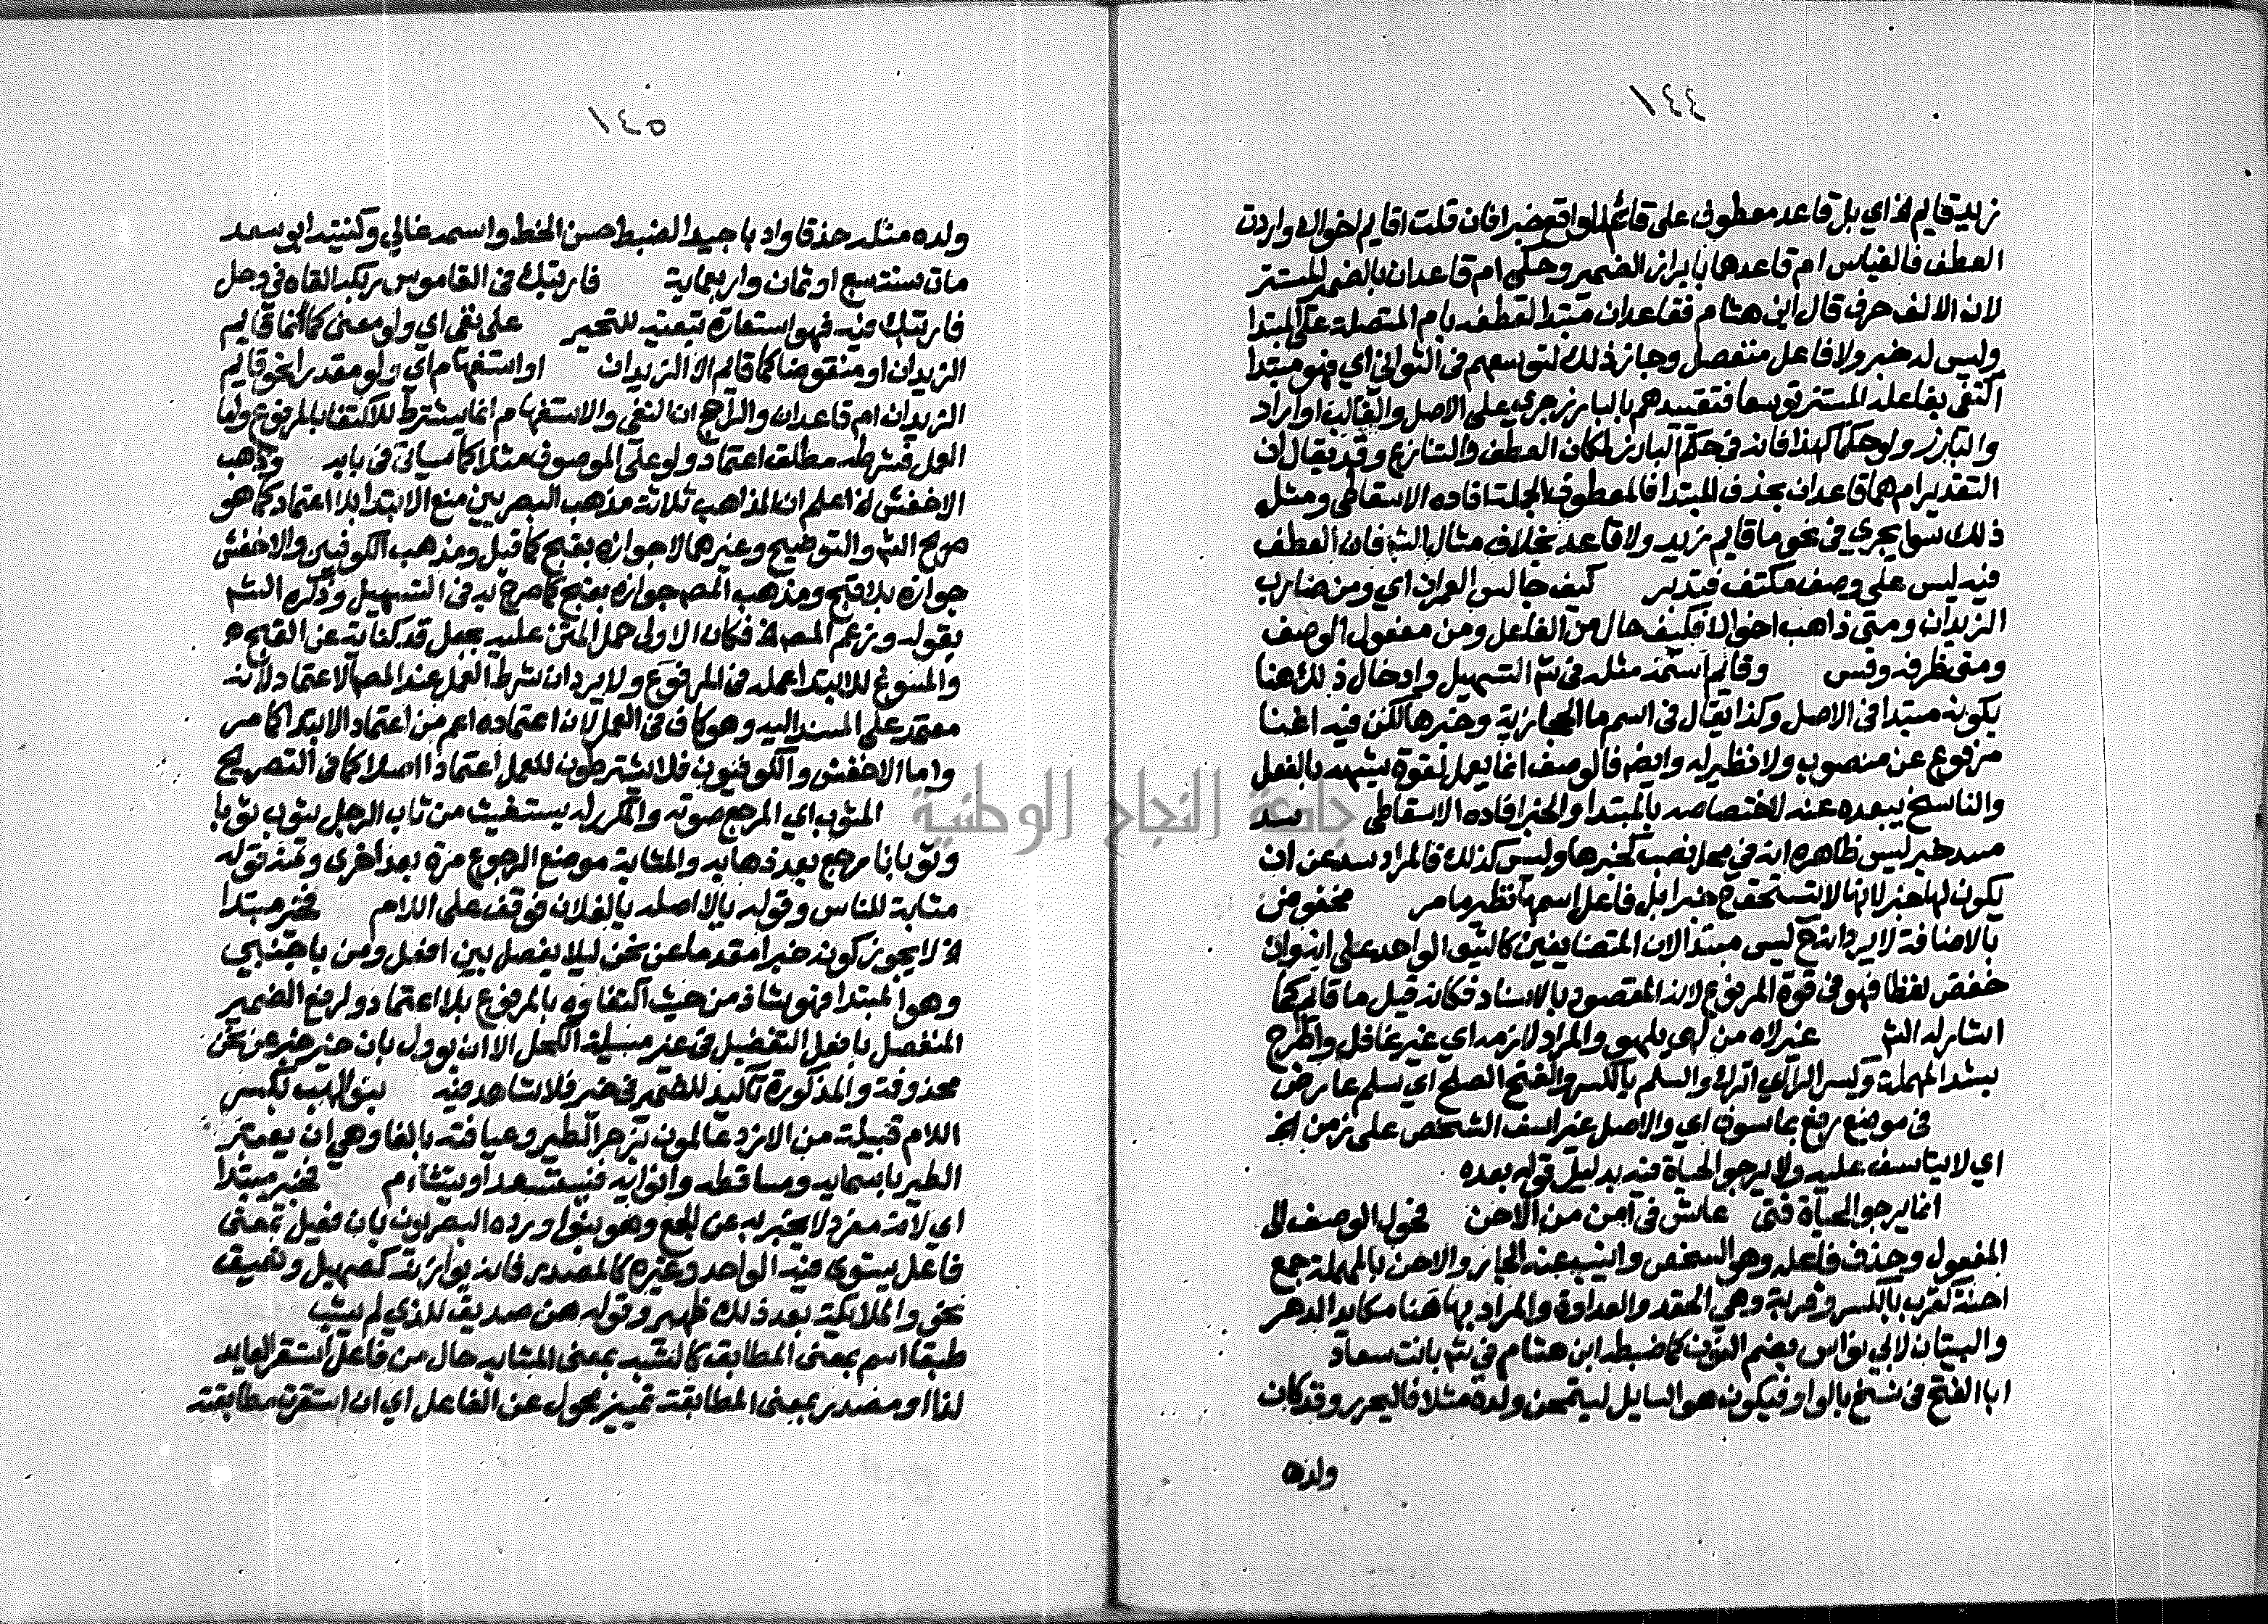 ١٤٤
زيد قايم الخ اي بل قاعد معطوف على قائم الواقع خبرا فان قلت اقايم اخواك واردت
العطف فالقياس ام قاعد هما بابراز الضمير وحكي ام قاعدان بالضمير المستتر
لان الالف حرف قال ابن هشام فقاعدان مبتدا لعطفه بام المتصلة على المبتدا
وليس له خبر ولا فاعل منفصل وجاز ذلك لتوسعهم في الثواني اي فهو مبتدا
اكتفى بفاعله المستتر توسعا فتقييدهم بالبارز جرى على الاصل والغالب او اراد
والبارز ولو حكما كهذا فانه في حكم البارز لمكان العطف والتنازع وقد يقال ان
التقدير ام هما قاعدان بحذف المبتدا فالمعطوف الجملة افاده الاسقاطي ومثل
ذلك سوا يجري في نحو ما قايم زيد ولا قاعد بخلاف مثال الش فان العطف
فيه ليس على وصف مكتف فتدبر كيف جالس العمران اي ومن ضارب
الزيدان ومتى ذاهب اخواك فكيف حال من الفاعل ومن مفعول الوصف
ومتى ظرفه وقس وقايم اسمه مثله في ش التسهيل وادخال ذلك هنا
بكونه مبتدا في الاصل وكذا يقال في اسم ما الحجازية وخبرها لكن فيه اغنا
مرفوع عن منصوب ولا نظير له وايض فالوصف انما يعمل لقوة شبهه بالفعل
والناسخ يبعده عنه لاختصاصه بالمبتدا والخبر افاده الاسقاطي سد
مسد خبر ليس ظاهره انه في محل نصب كخبرها وليس كذلك فالمراد سد عن ان
يكون لها خبر لانها لا تستحق ح خبرا بل فاعل اسمها نظير ما مر مخفوض
بالاضافة لا يرد انه ح ليس مبتدا لان المتضايفين كالشي الواحد على انه وان
خفض لفظا فهو في قوة المرفوع لانه المقصود بالاسناد فكانه قيل ما قايم كما
اشار له الش غير لاه من لهى يلهو والمراد لازمه اي غير غافل واطرح
بشد المهملة وكسر الراي اترك والسلم بالكسر والفتح الصلح اي سلم عارض
في موضع رفع بماسوف اي والاصل غير اسف الشخص على زمن الخ
اي لا يتاسف عليه ولا يرجو الحياة فيه بدليل قوله بعده
انما يرجو الحياة فتى عاش في امن من الاحن فحول الوصف الى
المفعول وحذف فاعله وهو الشخص وانيب عنه الجار والاحن بالمهملة جمع
احنة كقرب بالكسر وقربة وهي الحقد والعداوة والمراد بها هنا مكايد الدهر
والبيتان لابي نواس بضم النون كما ضبطه ابن هشام في ش بانت سعاد
ابا الفتح في نسخ بالواو فيكون هو السايل ليمتحن ولده مثلا فاليحرر وقد كان
ولده
١٤٥
ولده مثله حذقا وادبا جيد الضبط حسن الخط واسمه غالي وكنيته ابو سعد
مات سنة سبع او ثمان واربعماية فاربتك في القاموس ربكه القاه في وحل
فاربتك فيه فهو استعارة تبعية للتحير على نفي اي ولو معنى كما انما قايم
الزيدان او منقوضا كما قايم الا الزيدان او استفهام اي ولو مقدرا نحو قايم
الزيدان ام قاعدان والراجح ان النفي والاستفهام انما يشترط للاكتفا بالمرفوع واما
العمل فشرطه مطلق اعتماد ولو على الموصوف مثلا كما سياتي في بابه وذهب
الاخفش الخ اعلم ان المذاهب ثلاثة مذهب البصريين منع الابتدا بلا اعتماد كما هو
صريح الش والتوضيح وغيرهما لا جوازه بقبح كما قيل ومذهب الكوفيين والاخفش
جوازه بلا قبح ومذهب المصم جوازه بقبح كما صرح به في التسهيل وذكره الش
بقوله وزعم المصم الخ فكان الاولى حمل المتن عليه بجعل قد كناية عن القبح
والمسوغ للابتدا عمله في المرفوع ولا يرد ان شرط العمل عند المصم الاعتماد لانه
معتمد على المسند اليه وهو كاف في العمل لان اعتماده اعم من اعتماد الابتدا كما مر
واما الاخفش والكوفيون فلا يشترطون للعمل اعتمادا اصلا كما في التصريح
المثوب اي المرجع صوته والمكرر له يستغيث من ثاب الرجل يثوب ثوبا
وثوبانا رجع بعد ذهابه والمثابة موضع الرجوع مرة بعد اخرى ومنه قوله
مثابة للناس وقوله يالا اصله يالفلان فوقف على اللام فخبر مبتدا
الخ لا يجوز كونه خبرا مقدما عن نحن ليلا يفصل بين افعل ومن باجنبي
وهو المبتدا فهو شاذ من حيث اكتفاوه بالمرفوع بلا اعتماد ولرفع الضمير
المنفصل بافعل التفضيل في غير مسيلة الكحل الا ان يوول بان خير خبر عن نحن
محذوفة والمذكورة تاكيد للضمير في خير فلا شاهد فيه بنو لهب بكسر
اللام قبيلة من الازد عالمون بزجر الطير وعيافته بالفا وهي ان يعتبر
الطير باسمايه ومساقطه وانوايه فيستسعد او يتشام فخبر مبتدا
اي لانه مفرد لا يخبر به عن الجمع وهو بنو ورده البصريون بان فعيل بمعنى
فاعل يستوي فيه الواحد وغيره كالمصدر فانه يوازنه كصهيل ونهيق
نحو والملايكة بعد ذلك ظهير وقوله هن صديق للذي لم يشب
طبقا اسم بمعنى المطابق كالشبه بمعنى المشابه حال من فاعل استقر العايد
لذا او مصدر بمعنى المطابقة تمييز محول عن الفاعل اي ان استقرت مطابقته
جامعة النجاح الوطنية